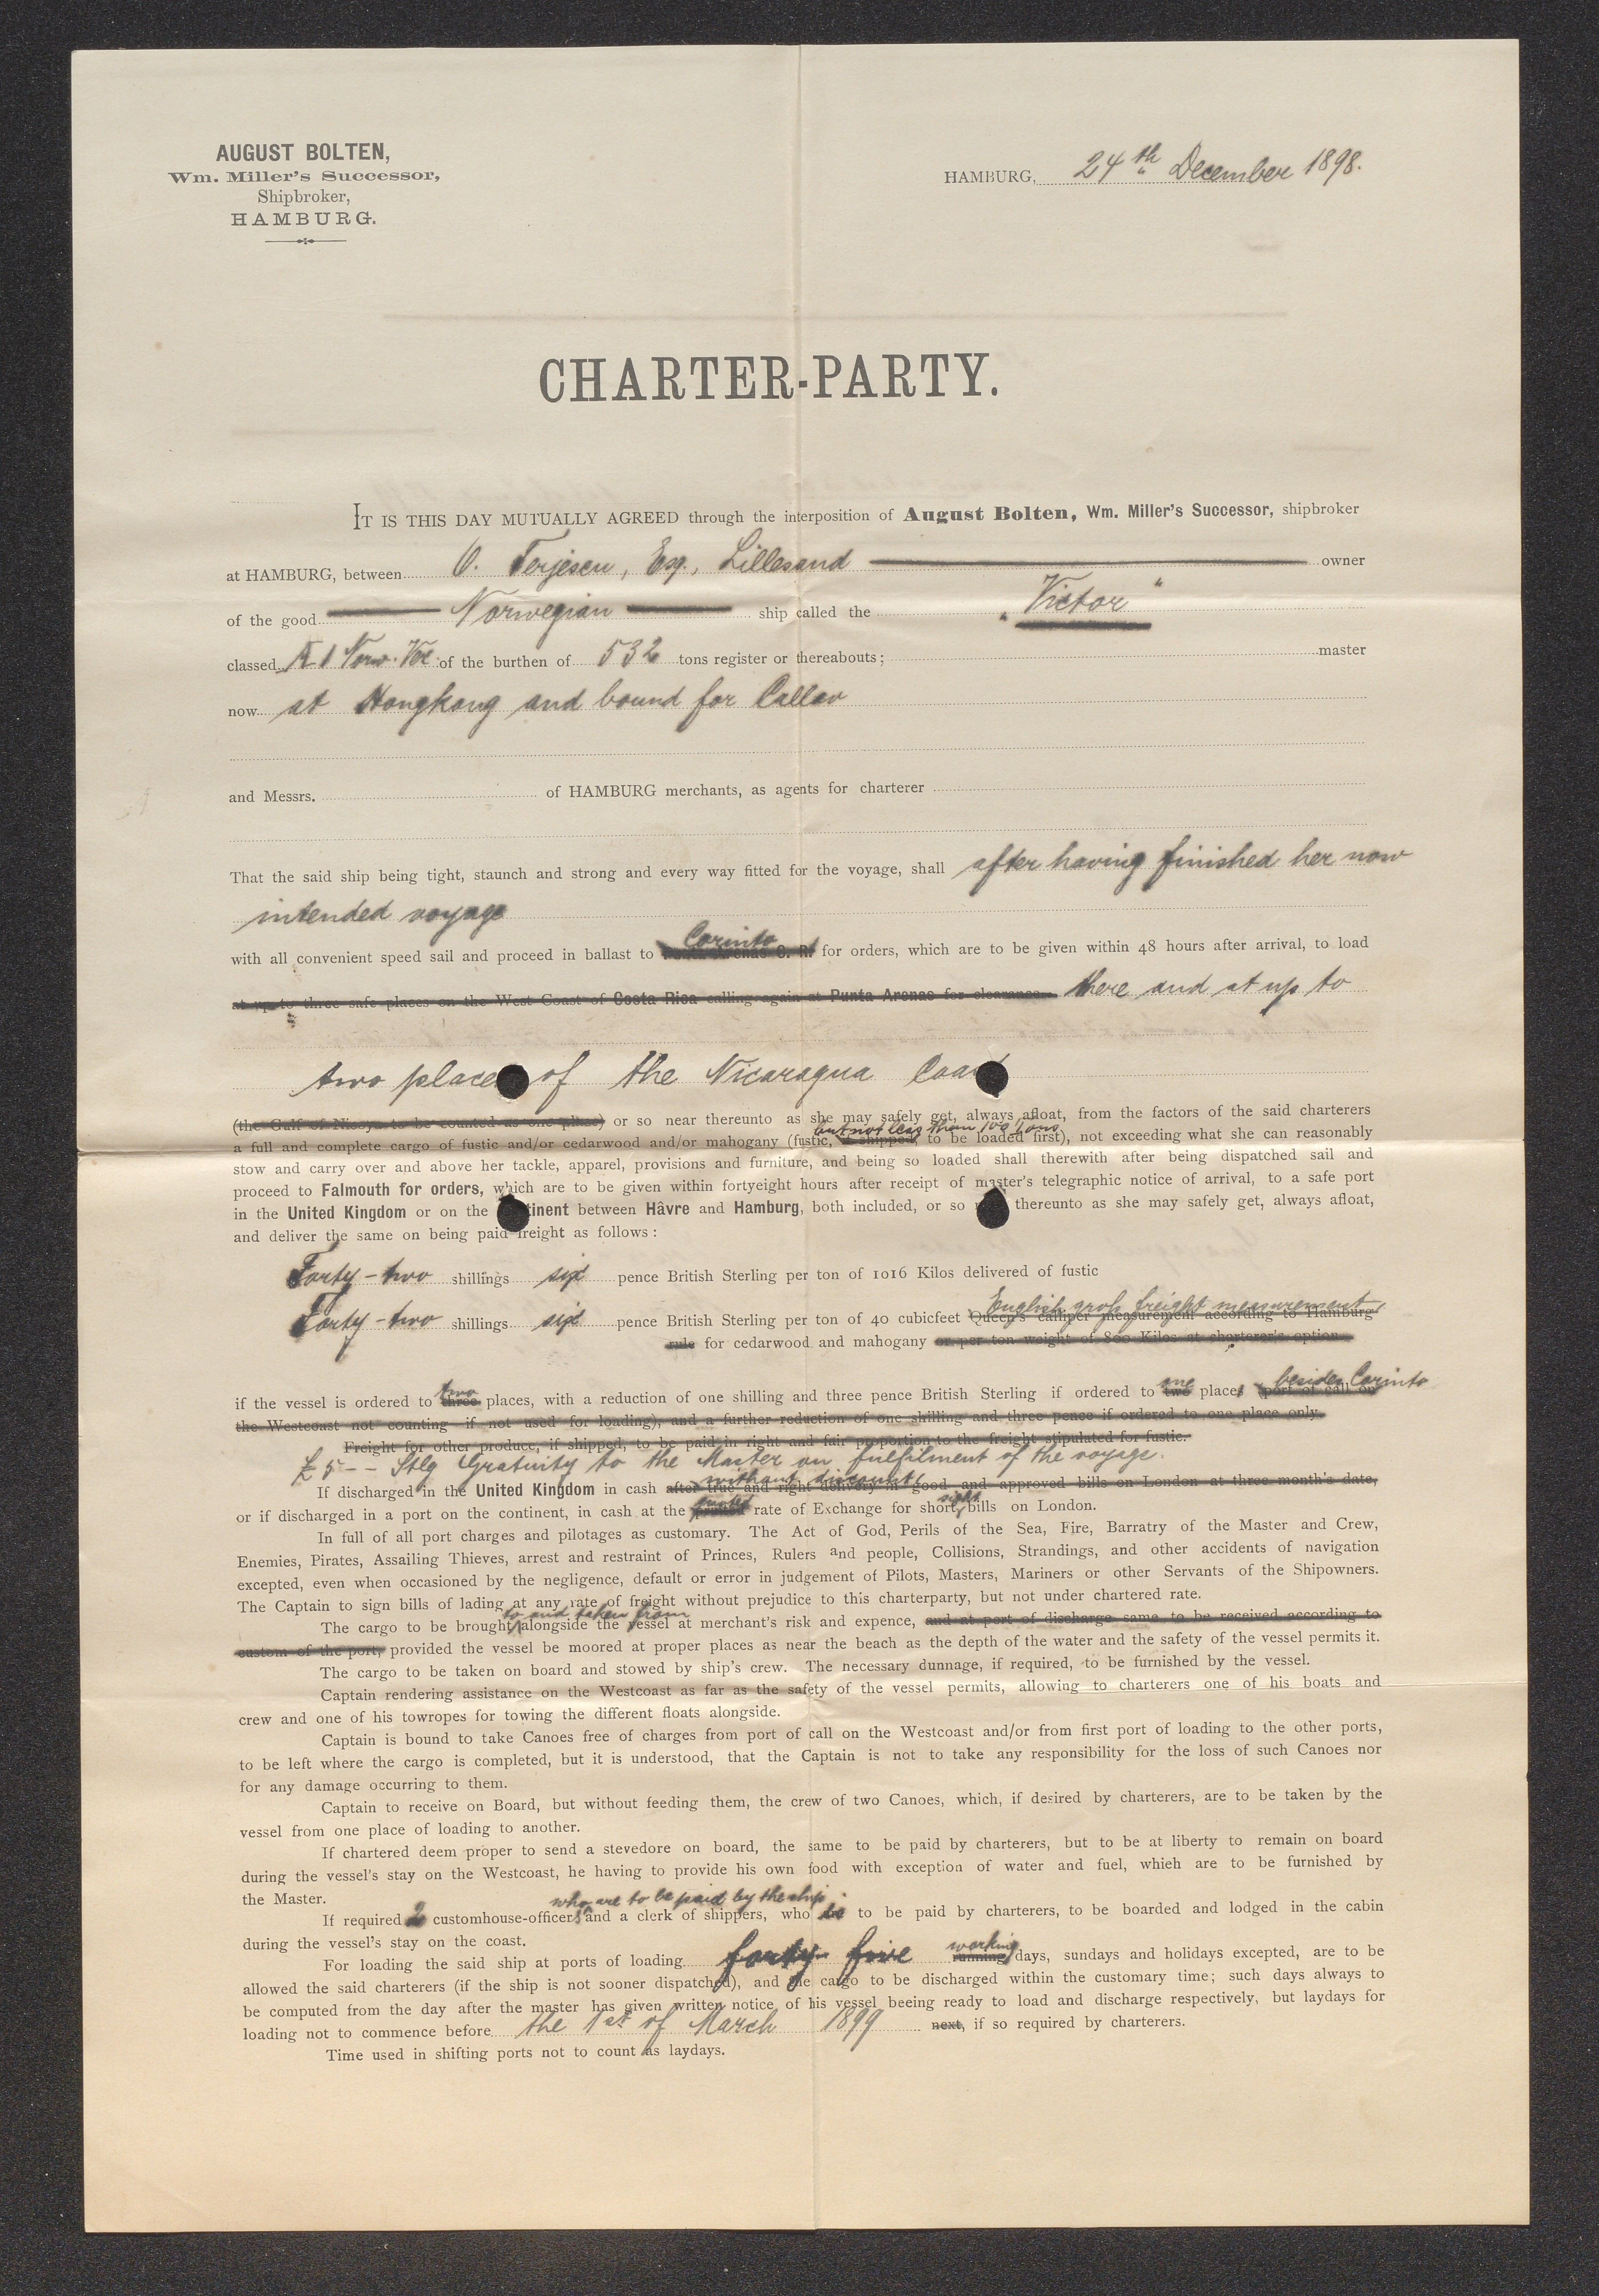 AUGUST BOLTEN,
Wm. Miller's Successor,
Shipbroker,
HAMBURG.
HAMBURG, 24th December 1898.
CHARTER-PARTY.
IT IS THIS DAY MUTUALLY AGREED through the interposition of August Bolten, Wm. Miller's Successor, shipbroker
at HAMBURG, between O. Terjesen, Esq., Lillesand owner
of the good Norwegian ship called the "Victor"
classed A 1 Norw. Ver. of the burthen of 532 tons register or thereabouts; master
now at Hongkong and bound for Callao
and Messrs. of HAMBURG merchants, as agents for charterer
That the said ship being tight, staunch and strong and every way fitted for the voyage, shall after having finished her now
intended voyage
Corinto
with all convenient speed sail and proceed in ballast to Punta Arenas C. R. for orders, which are to be given within 48 hours after arrival, to load
at up to three safe places on the West Coast of Costa Rica calling again at Punta Arenas for clearance there and at up to
two places of the Nicaragua Coast
(the Gulf of Nicoya to be counted as one place) or so near thereunto as she may safely get, always afloat, from the factors of the said charterers
but not less than 100 Tons
a full and complete cargo of fustic and/or cedarwood and/or mahogany (fustic, if shipped, to be loaded first), not exceeding what she can reasonably
stow and carry over and above her tackle, apparel, provisions and furniture, and being so loaded shall therewith after being dispatched sail and
proceed to Falmouth for orders, which are to be given within fortyeight hours after receipt of master's telegraphic notice of arrival, to a safe port
in the United Kingdom or on the Continent between Hâvre and Hamburg, both included, or so near thereunto as she may safely get, always afloat,
and deliver the same on being paid freight as follows:
Forty-two shillings six pence British Sterling per ton of 1016 Kilos delivered of fustic
English gross freight measurement
Forty-two shillings six pence British Sterling per ton of 40 cubicfeet Queen's calliper measurement according to Hamburg
rule for cedarwood and mahogany or per ton weight of 800 Kilos at charterer's option
two one besides Corinto
if the vessel is ordered to three places, with a reduction of one shilling and three pence British Sterling if ordered to two places (port of call on
the Westcoast not counting if not used for loading), and a further reduction of one shilling and three pence if ordered to one place only.
Freight for other produce, if shipped, to be paid in right and fair proportion to the freight stipulated for fustic.
£ 5 -- Stlg Gratuity to the Master on fulfilment of the voyage.
without discount
If discharged in the United Kingdom in cash after true and right delivery in good and approved bills on London at three month's date,
quoted sight
or if discharged in a port on the continent, in cash at the rate of Exchange for short bills on London.
In full of all port charges and pilotages as customary. The Act of God, Perils of the Sea, Fire, Barratry of the Master and Crew,
Enemies, Pirates, Assailing Thieves, arrest and restraint of Princes, Rulers and people, Collisions, Strandings, and other accidents of navigation
excepted, even when occasioned by the negligence, default or error in judgement of Pilots, Masters, Mariners or other Servants of the Shipowners.
The Captain to sign bills of lading at any rate of freight without prejudice to this charterparty, but not under chartered rate.
to and taken from
The cargo to be brought alongside the vessel at merchant's risk and expence, and at port of discharge same to be received according to
custom of the port, provided the vessel be moored at proper places as near the beach as the depth of the water and the safety of the vessel permits it.
The cargo to be taken on board and stowed by ship's crew. The necessary dunnage, if required, to be furnished by the vessel.
Captain rendering assistance on the Westcoast as far as the safety of the vessel permits, allowing to charterers one of his boats and
crew and one of his towropes for towing the different floats alongside.
Captain is bound to take Canoes free of charges from port of call on the Westcoast and/or from first port of loading to the other ports,
to be left where the cargo is completed, but it is understood, that the Captain is not to take any responsibility for the loss of such Canoes nor
for any damage occurring to them.
Captain to receive on Board, but without feeding them, the crew of two Canoes, which, if desired by charterers, are to be taken by the
vessel from one place of loading to another.
If chartered deem proper to send a stevedore on board, the same to be paid by charterers, but to be at liberty to remain on board
during the vessel's stay on the Westcoast, he having to provide his own food with exception of water and fuel, whieh are to be furnished by
the Master.
who are to be paid by the ship
If required 2 customhouse-officers and a clerk of shippers, who is to be paid by charterers, to be boarded and lodged in the cabin
during the vessel's stay on the coast.
working
For loading the said ship at ports of loading forty-five running days, sundays and holidays excepted, are to be
allowed the said charterers (if the ship is not sooner dispatched), and the cargo to be discharged within the customary time; such days always to
be computed from the day after the master has given written notice of his vessel beeing ready to load and discharge respectively, but laydays for
loading not to commence before the 1st of March 1899 next, if so required by charterers.
Time used in shifting ports not to count as laydays.